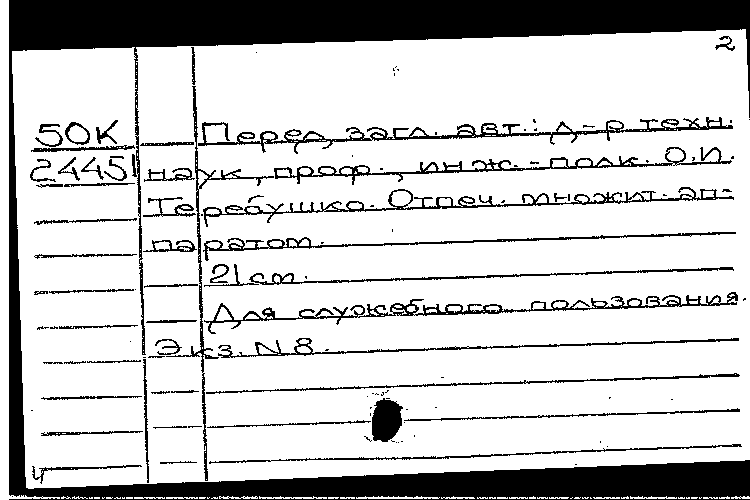 2
50К Перед загл. авт.: д-р техн.
24451 наук, проф., инж.-полк. О.И.
Теребушко. Отпеч. множит. ап-
паратом.
21 см.
Для служебного пользования.
Экз. N 8.